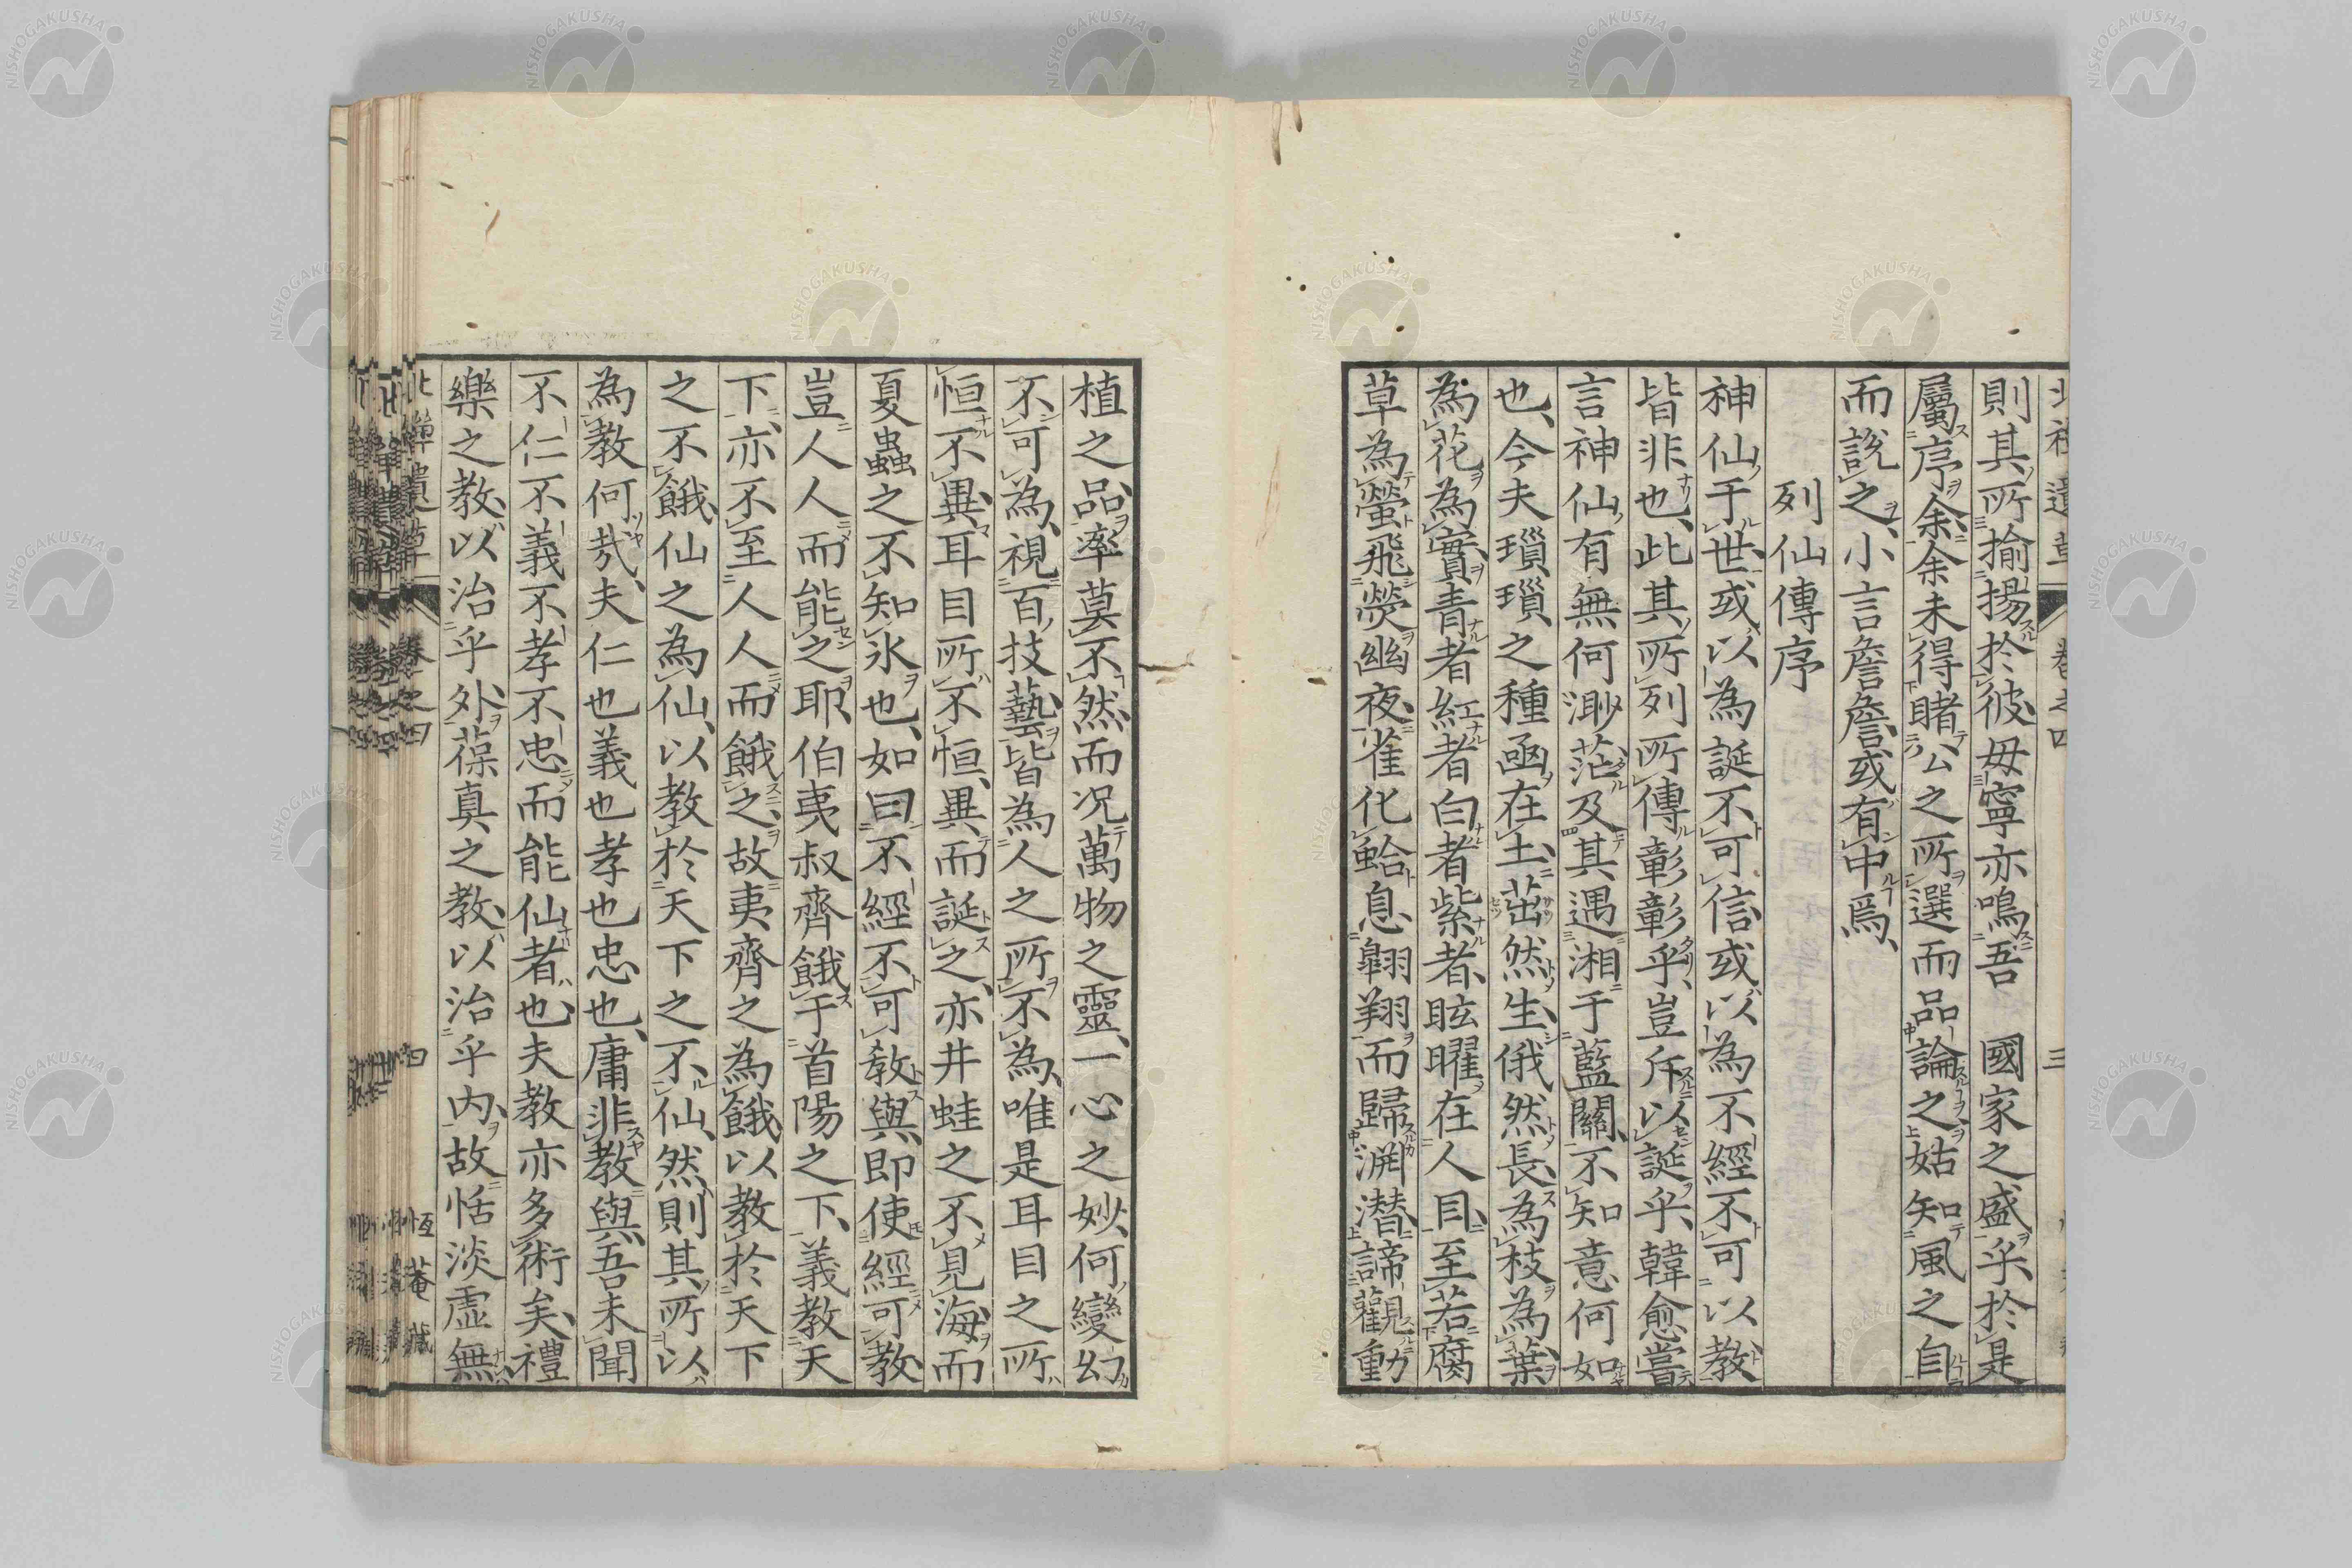 則其所揄揚於彼毋寧亦鳴吾 國家之盛乎於是
屬序余余未得睹公之所選而品論之姑知風之自
而說之小言詹詹或有中焉
列仙傳序
神仙于世或以為誕不可信或以為不經不可以教
皆非也此其所列所傳彰彰乎豈斥以誕乎韓愈嘗
言神仙有無何渺茫及其遇湘于藍關不知意何如
也今夫瑣瑣之種函在土茁然生俄然長為枝為葉
為花為實青者紅者白者紫者眩曜在人目至若腐
草為螢飛熒幽夜雀化蛤息翺翔而歸淵潛諦觀動
植之品率莫不然而況萬物之靈一心之妙何變幻
不可為視百技藝皆為人之所不為唯是耳目之所
恒不異耳目所不恒異而誕之亦井蛙之不見海而
夏蟲之不知氷也如曰不經不可教與即使經可教
豈人人而能之耶伯夷叔齊餓于首陽之下義教天
下亦不至人人而餓之故夷齊之為餓以教於天下
之不餓仙之為仙以教於天下之不仙然則其所以
為教何㢤夫仁也義也孝也忠也庸非教與吾未聞
不仁不義不孝不忠而能仙者也夫教亦多術矣禮
樂之教以治乎外葆真之教以治乎內故恬淡虛無